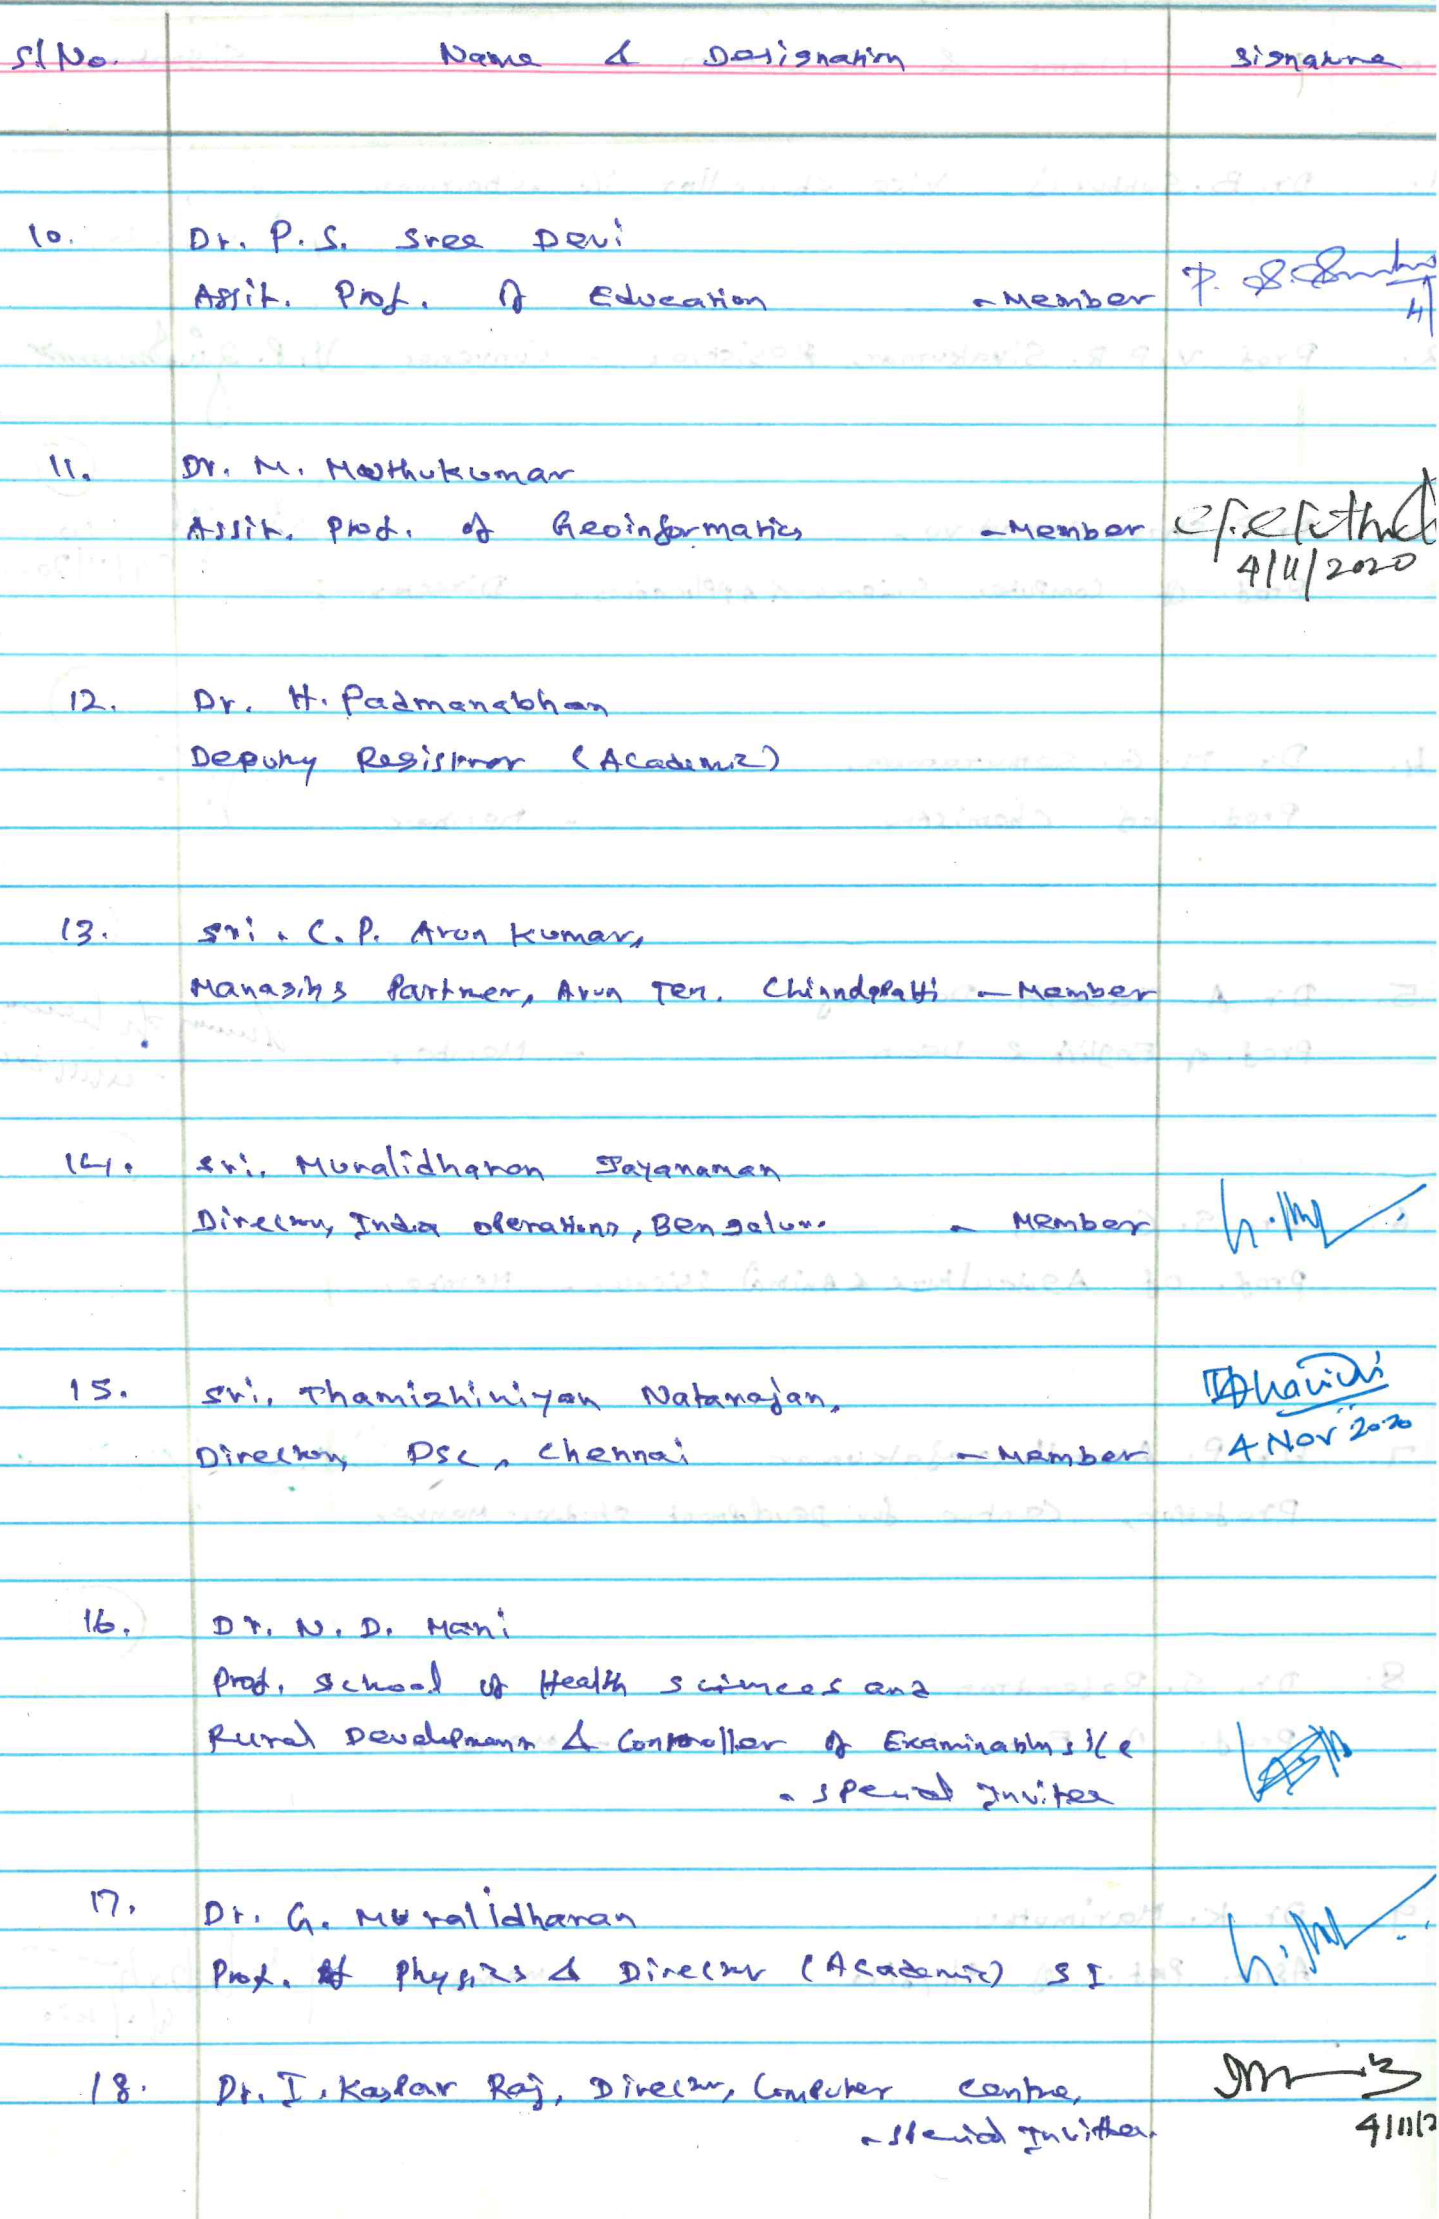 Sl No. Name & Designation Signature
10. Dr. P.S. Sree Devi
Assit. Prof. of Education - Member P. S.
11. Dr. M. Muthukumar
Assit. Prof. of Geoinformatics - Member
4/11/2020
12. Dr. H. Padmanabhan
Deputy Registrar (Academic)
13. Sri. C.P. Arun Kumar,
Managing Partner, Arun Tex. Chinnalapatti - Member
14. Sri. Muralidharan Jayaraman
Director, India Operations, Bengaluru - Member
15. Sri. Thamizhiniyan Natarajan,
Director, DSC, Chennai - Member
4 Nov 2020
16. Dr. N. D. Mani
Prof. School of Health Sciences and
Rural Development & Controller of Examinations i/c
- Special Invitee
17. Dr. G. Muralidharan
Prof. of Physics & Director (Academic) SI
18. Dr. I. Kaspar Raj, Director, Computer Centre,
- Special Invitee.
4/11/2